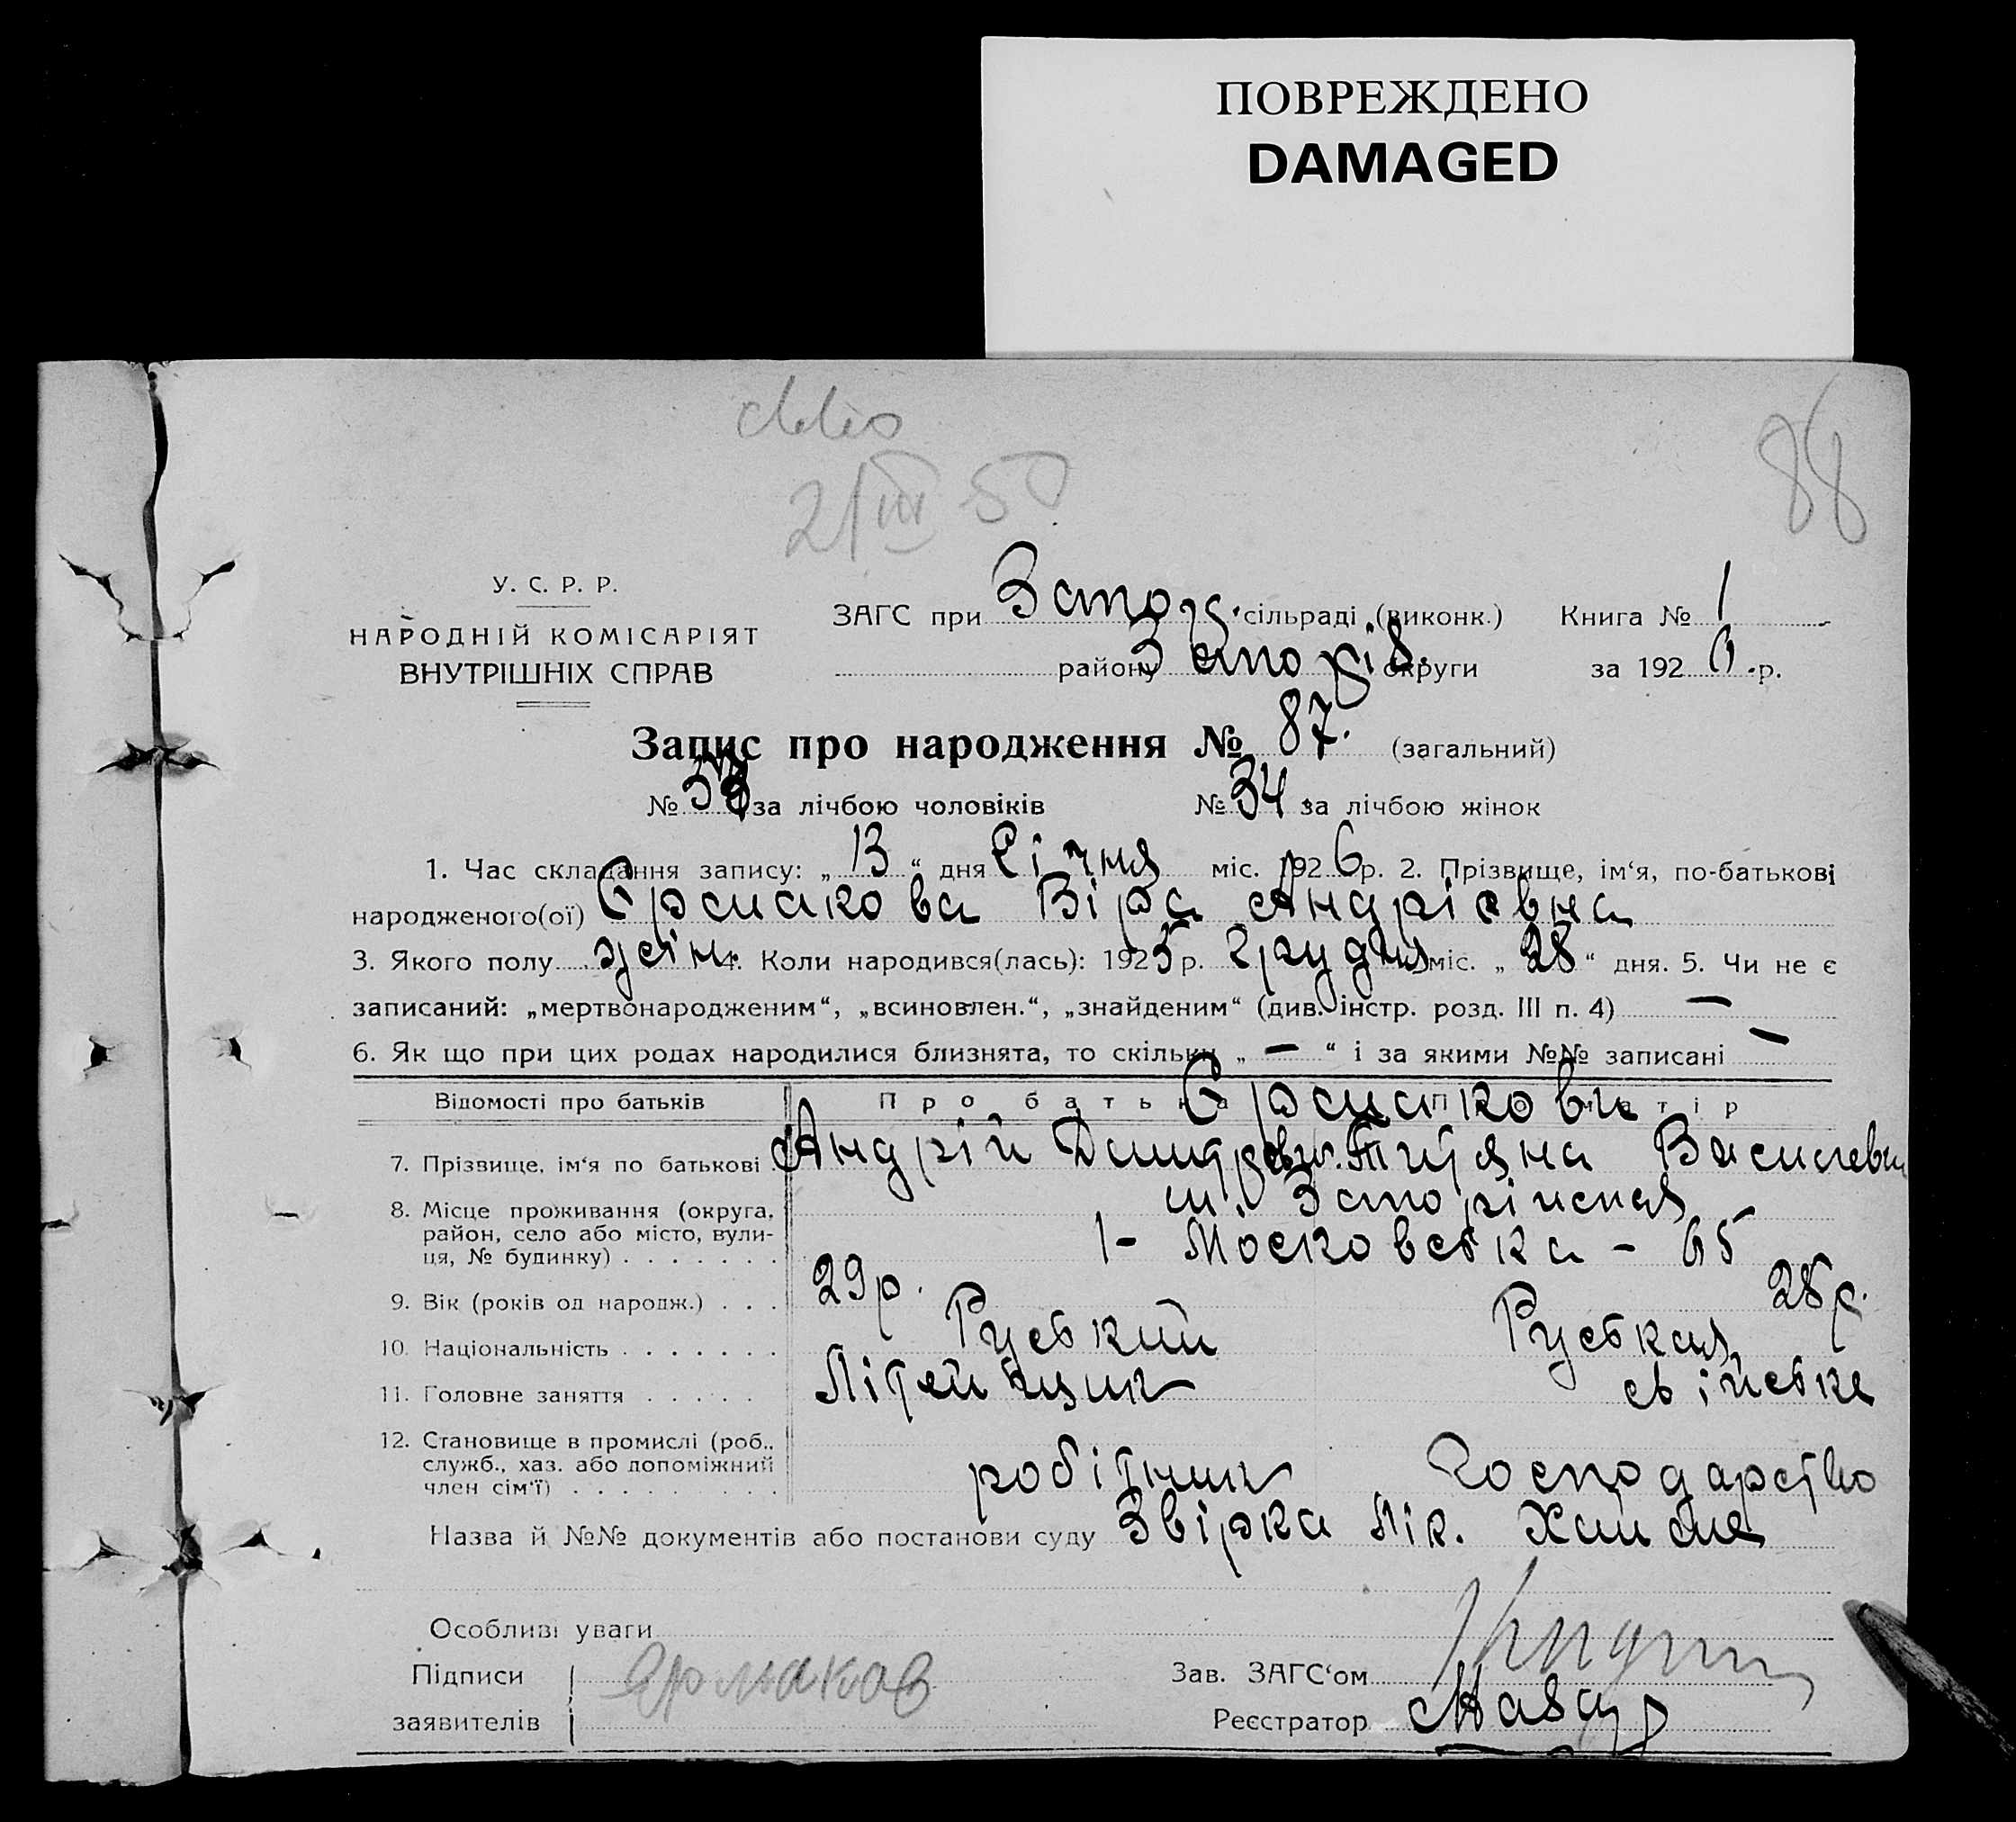 ПОВРЕЖДЕНО
DAMAGED
2/III 50
88
У. С. Р. Р.
НАРОДНІЙ КОМІСАРІЯТ
ВНУТРІШНІХ СПРАВ
ЗАГС при Запор. сільраді (виконк.) Книга № 1
району Запоріз. округи за 1926 р.
Запис про народження № 87. (загальний)
№ 53 за лічбою чоловіків № 34 за лічбою жінок
1. Час складання запису: „ 13 “ дня Січня міс. 1926 р. 2. Прізвище, ім‘я, по-батькові
народженого(ої) Єрмакова Віра Андріевна
3. Якого полу жін. 4. Коли народився(лась): 1925 р. Грудня міс. „ 28 “ дня. 5. Чи не є
записаний: „мертвонародженим“, „всиновлен.“, „знайденим“ (див. інстр. розд. III п. 4) —
6. Як що при цих родах народилися близнята, то скільки „ — “ і за якими №№ записані —
Відомості про батьків Про батька Про матір
Єрмакови
7. Прізвище, ім‘я по батькові Андрій Дмитрович. Титяна Василевн
8. Місце проживання (округа,
район, село або місто, вули-
ця, № будинку) . . . . . . .
м. Запоріжжя
1- Московська - 65
9. Вік (років од народж.) . . . 29 р. 28 р.
10. Національність . . . . . . . Руський Руськая
11. Головне заняття . . . . . Літейщик свійське
12. Становище в промислі (роб.,
служб., хаз. або допоміжний
член сім‘ї) . . . . . . . . .
робітник господарство
Назва й №№ документів або постанови суду Звірка Лік.
Особливі уваги
Підписи Ярмаков
заявителів
Зав. ЗАГС‘ом
Реєстратор Назар